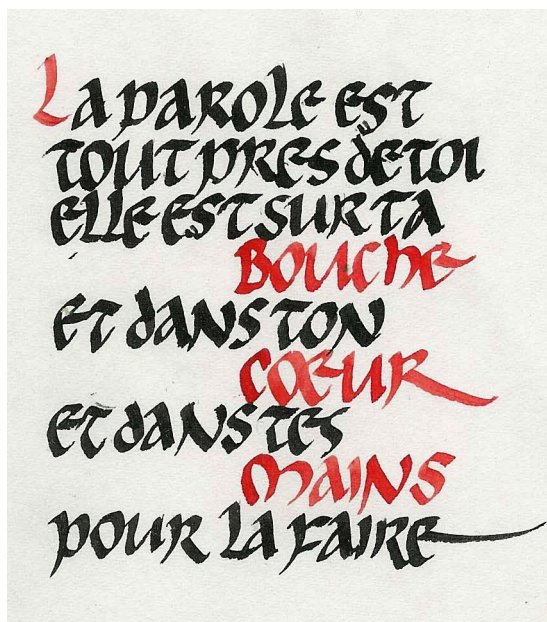 La parole est
tout pres de toi
elle est sur ta
Bouche
et dans ton
cœur
et dans tes
mains
pour la faire